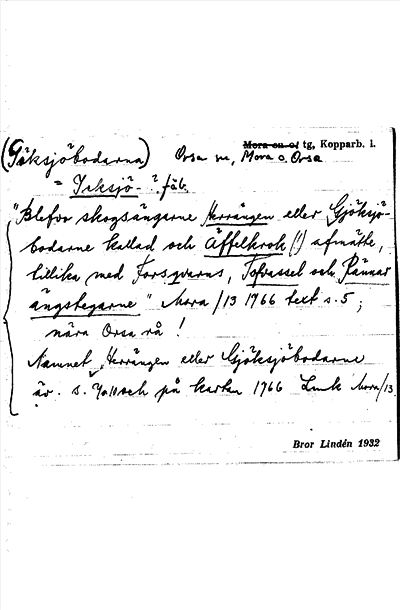 (Göksjöbodarna) Orsa sn, Mora o. Orsa tg, Kopparb. l.
= Yrksjö- ? fäb.
"Blefvo skogsängarne Herrängen eller Gjöksjö-
bodarne kallad och Äffelkrok (!) afmätte,
tillika med Forsqvarns, Tofvassel och Rännar
ängstegarne" Mora/13 1766 text s. 5;
nära Orsa rå!
Namnet Herrängen eller Gjöksjöbodarne
är. s. 9 o. 10 och på kartan 1766 Lmk Mora/13
Bror Lindén 1932